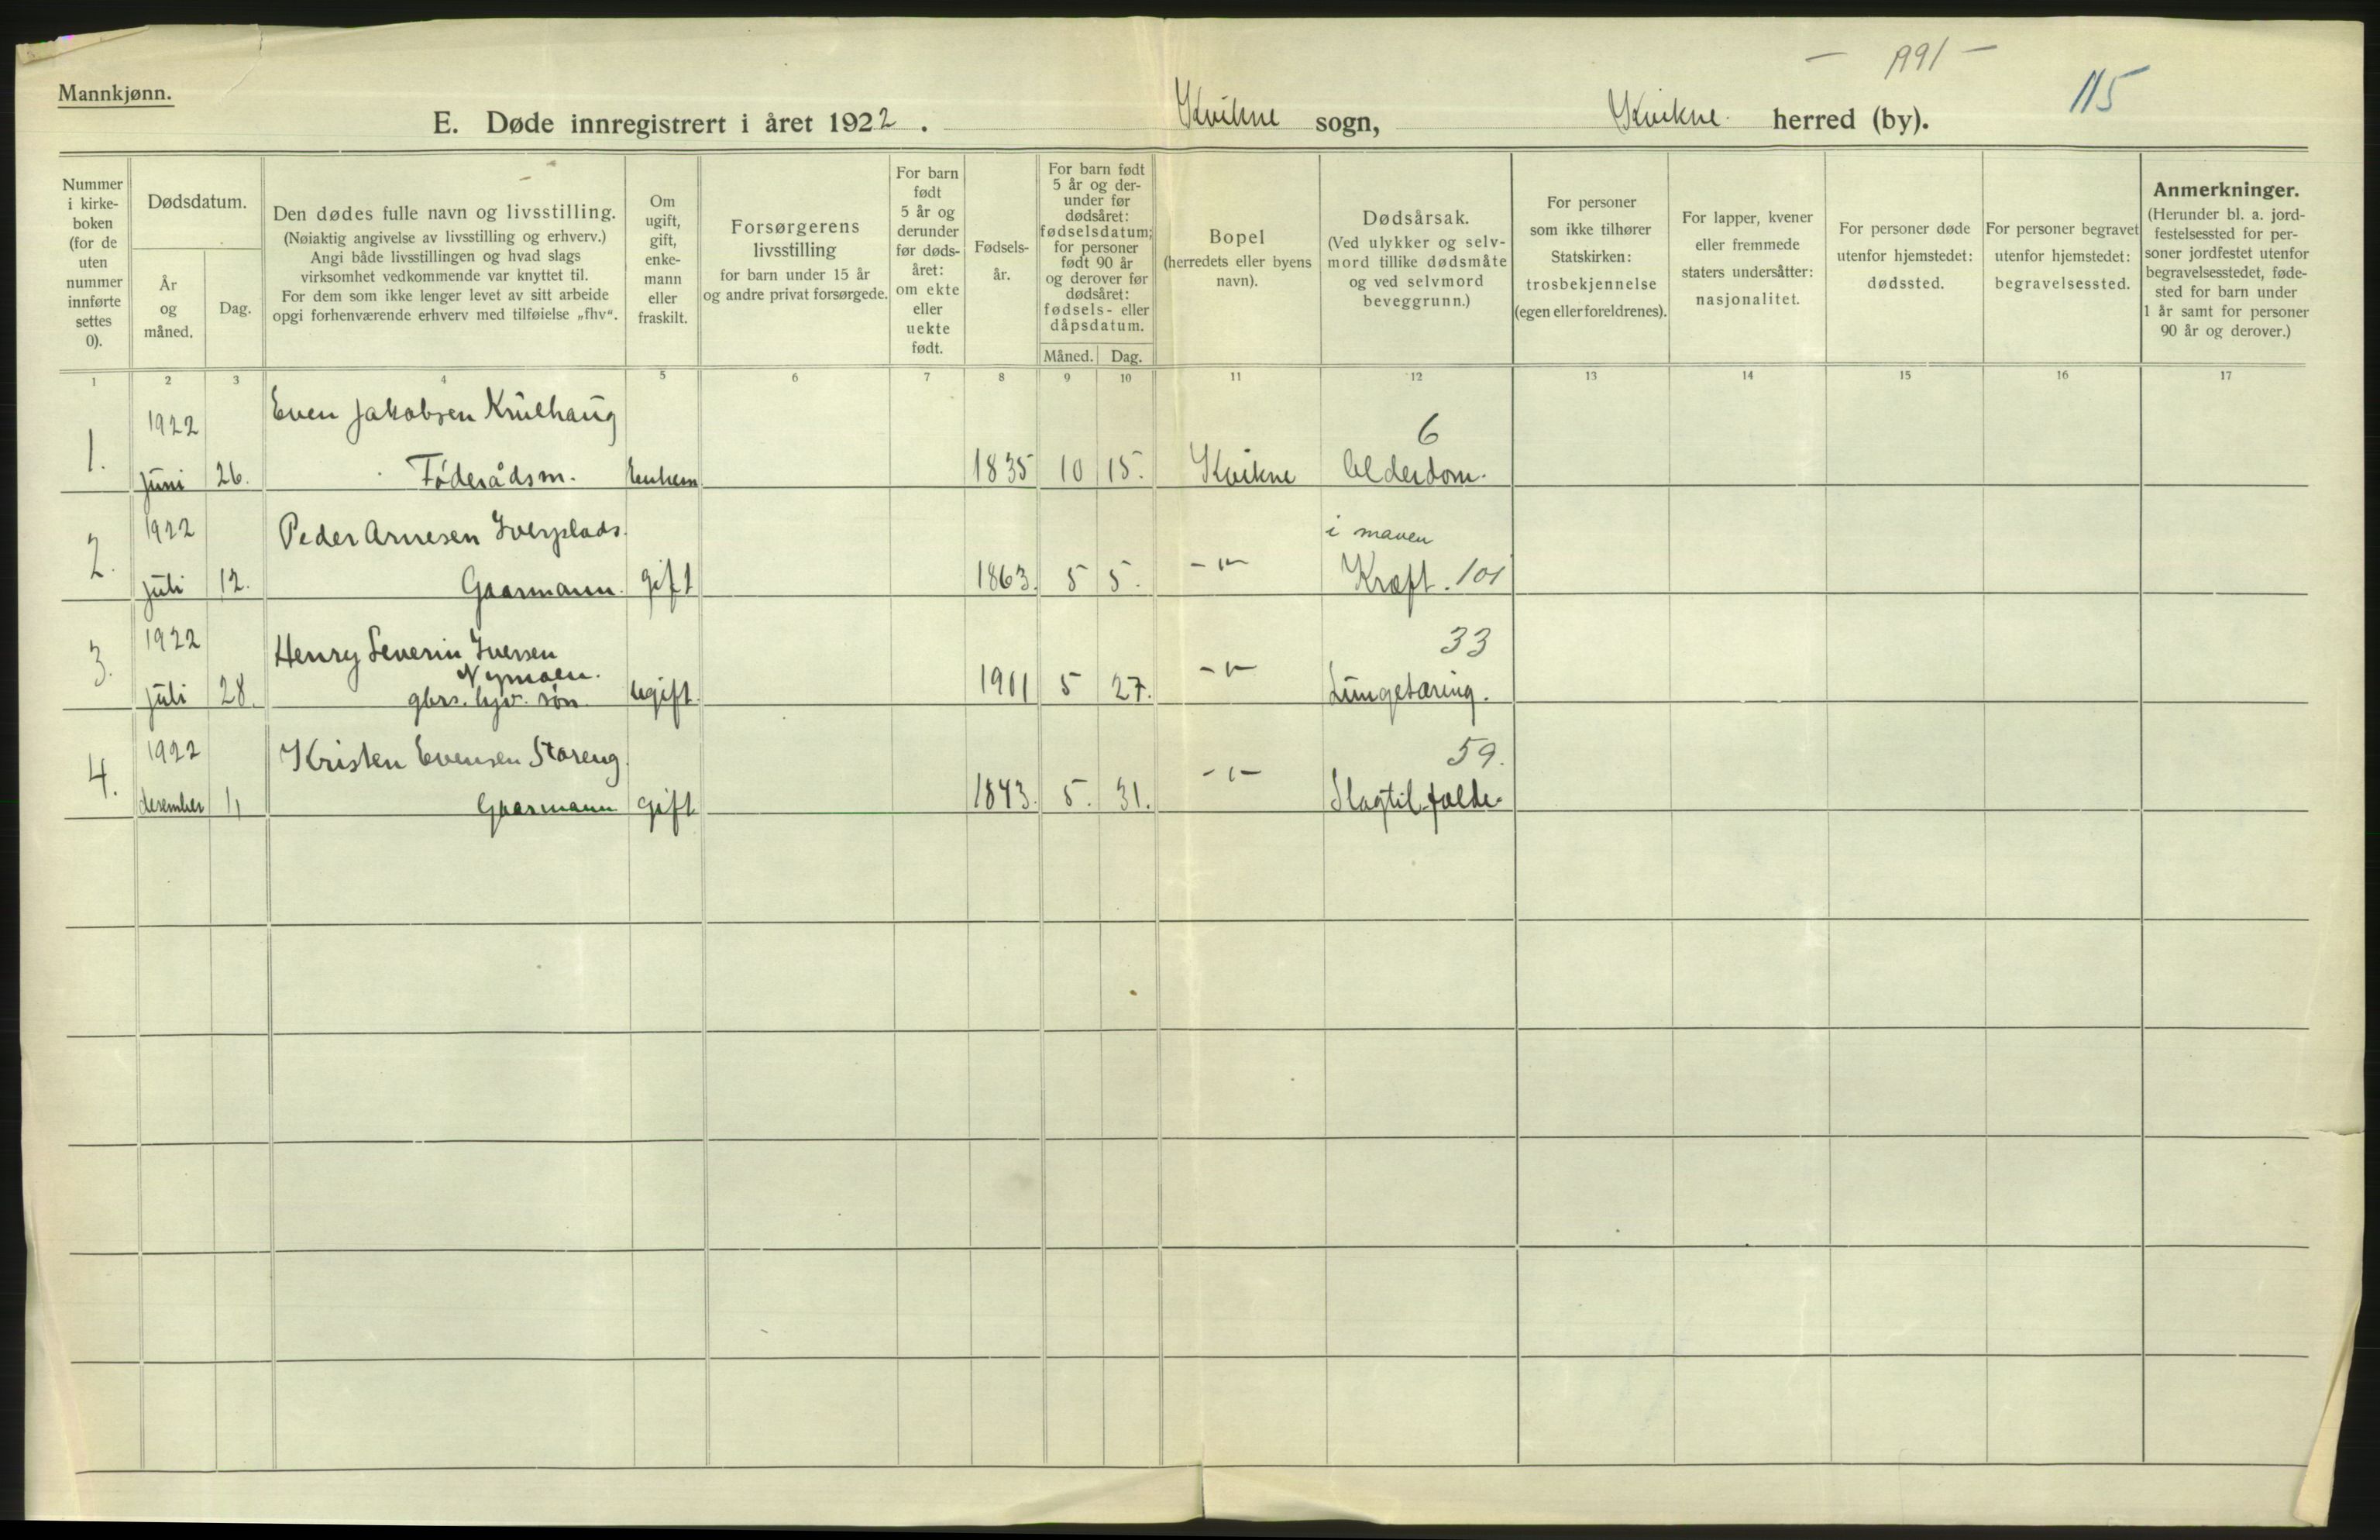 - A91 -
115
Mannkjønn.
E. Døde innregistrert i året 1922. Kvikne sogn, Kvikne herred (by).
Nummer i kirke- boken (for de uten nummer innførte settes 0).
Dødsdatum.
År og måned.
Dag.
Den dødes fulle navn og livsstilling.
(Nøiaktig angivelse av livsstilling og erhverv.)
Angi både livsstillingen og hvad slags
virksomhet vedkommende var knyttet til.
For dem som ikke lenger levet av sitt arbeide
opgi forhenværende erhverv med tilføielse „fhv“.
Om ugift, gift, enke- mann eller fraskilt.
Forsørgerens
livsstilling
for barn under 15 år
og andre privat forsørgede.
For barn født 5 år og derunder før døds- året: om ekte eller uekte født.
Fødsels- år.
For barn født 5 år og der- under før dødsåret: fødselsdatum; for personer født 90 år og derover før dødsåret: fødsels- eller dåpsdatum.
Måned. Dag.
Bopel
(herredets eller byens
navn).
Dødsårsak.
(Ved ulykker og selv-
mord tillike dødsmåte
og ved selvmord
beveggrunn.)
For personer
som ikke tilhører
Statskirken:
trosbekjennelse
(egen eller foreldrenes).
For lapper, kvener
eller fremmede
staters undersåtter:
nasjonalitet.
For personer døde
utenfor hjemstedet:
dødssted.
For personer begravet
utenfor hjemstedet:
begravelsessted.
Anmerkninger.
(Herunder bl. a. jord-
festelsessted for per-
soner jordfestet utenfor
begravelsesstedet, føde-
sted for barn under
1 år samt for personer
90 år og derover.)
1 2 3 4 5 6 7 8 9 10 11 12 13 14 15 16 17
1922 Even Jakobsen 6
1. Juni 26. Føderådsm. Enkem 1835 10 15. Kvikne Alderdom.
1922 Peder Arnesen i maven
2. juli 12. Gaarmann. gift 1863. 5 5. -"- Kræft. 101
1922 Henry Severin Iversen 33
Nymoen.
3. juli 28. gbrs. søn ugift. 1901 5 27. -"- Lungetæring.
1922 Kristen Evensen Støreng 59.
4. desember 11 Gaarmann gift 1843. 5. 31. -"- Slagtilfælde.